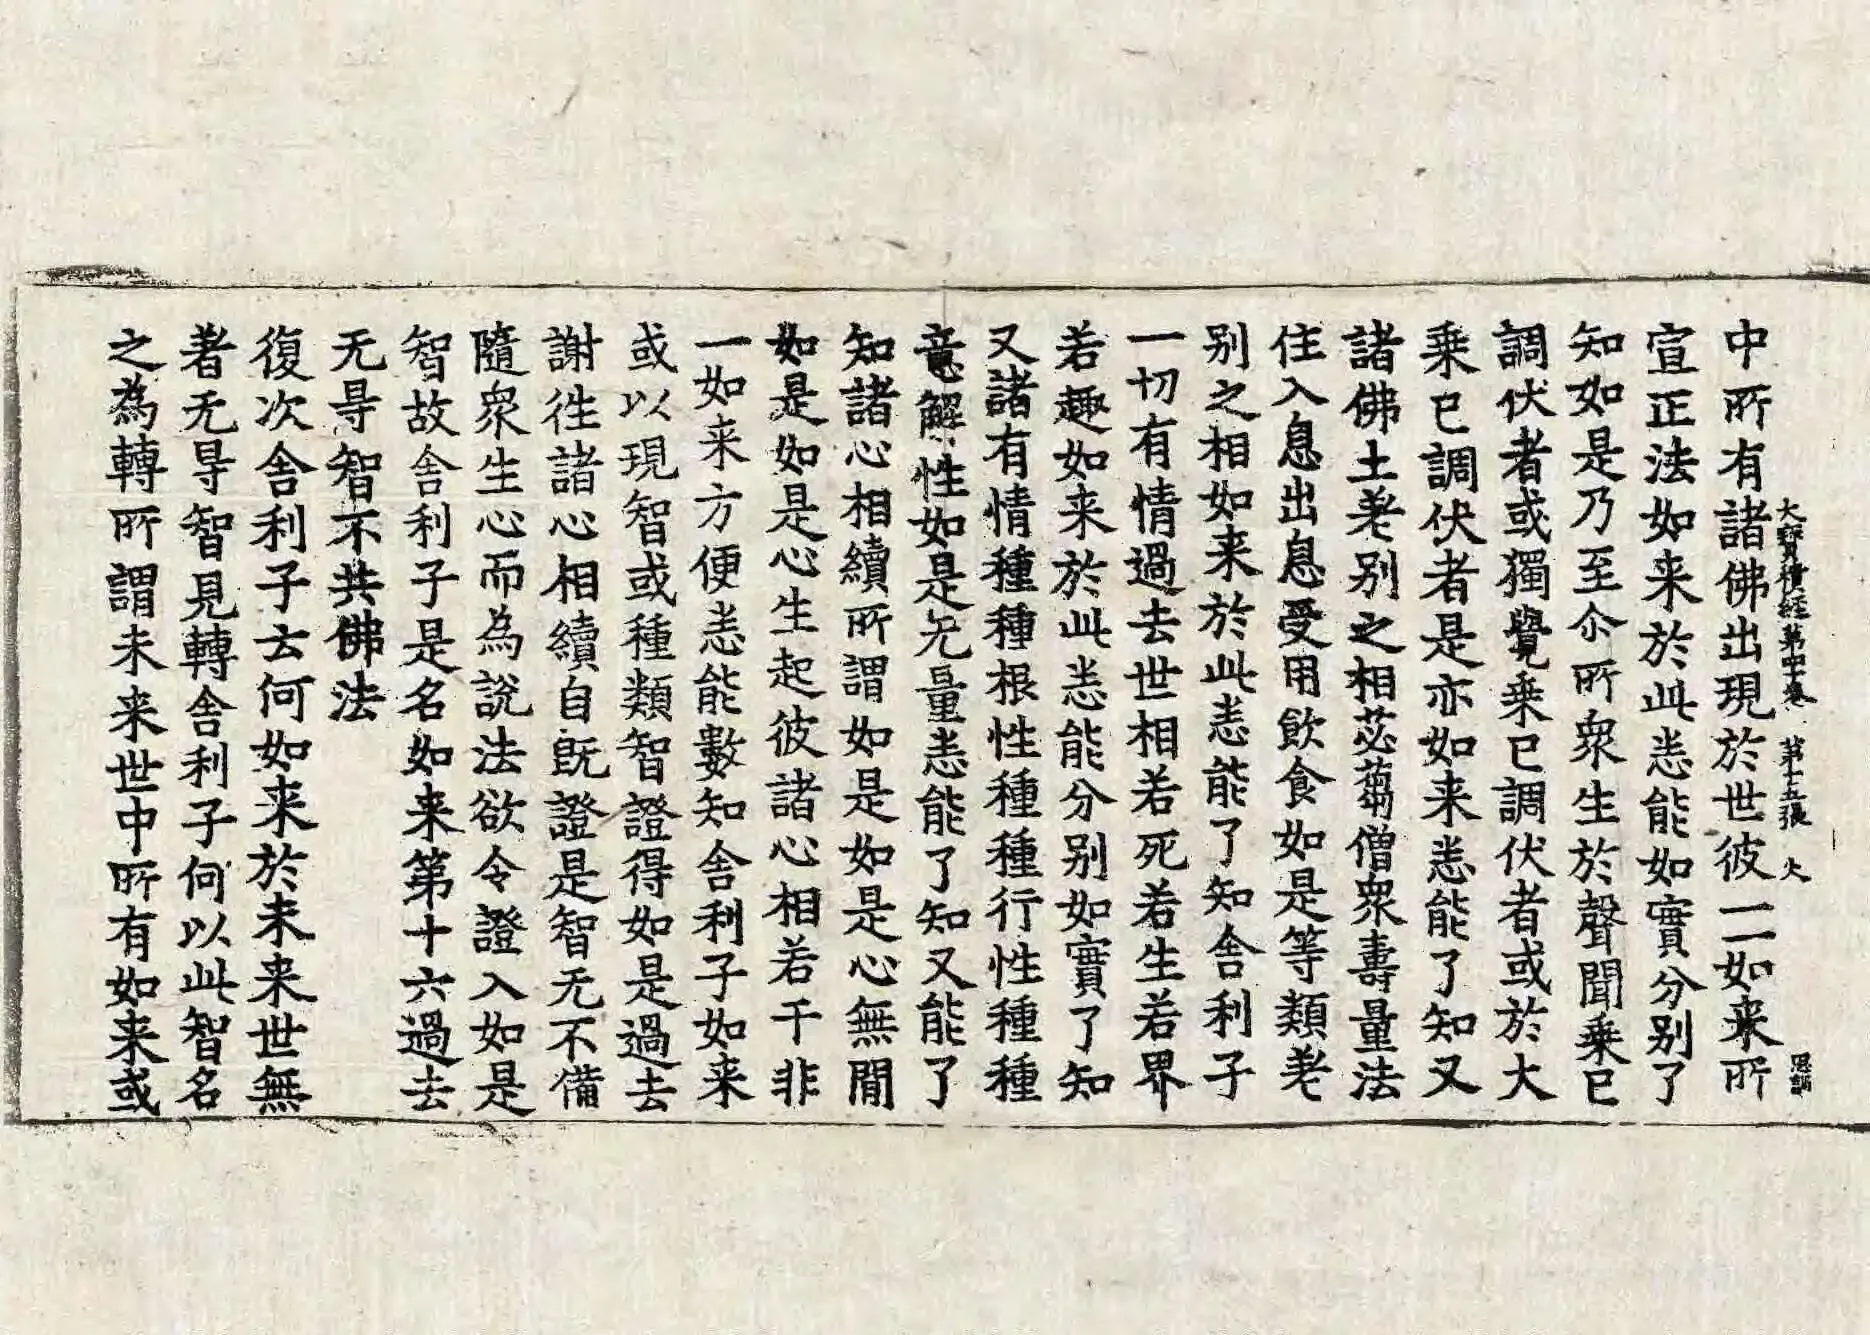 大寶積經第四十卷 第十五張 火
中所有諸佛出現於世彼一一如来所
宣正法如来於此悉能如實分别了
知如是乃至尒所眾生於聲聞乗已
調伏者或獨覺乗已調伏者或於大
乗已調伏者是亦如来悉能了知又
諸佛土差别之相苾蒭僧眾壽量法
住入息出息受用飲食如是等類差
别之相如来於此悉能了知舎利子
一切有情過去世相若死若生若界
若趣如来於此悉能分别如實了知
又諸有情種種根性種種行性種種
意解性如是无量悉能了知又能了
知諸心相續所謂如是如是心無間
如是如是心生起彼諸心相若干非
一如来方便悉能數知舎利子如来
或以現智或種類智證得如是過去
謝徃諸心相續自既證是智无不備
隨眾生心而為說法欲令證入如是
智故舎利子是名如来第十六過去
无㝵智不共佛法
復次舎利子云何如来於未来世無
著无㝵智見轉舎利子何以此智名
之為轉所謂未来世中所有如来或